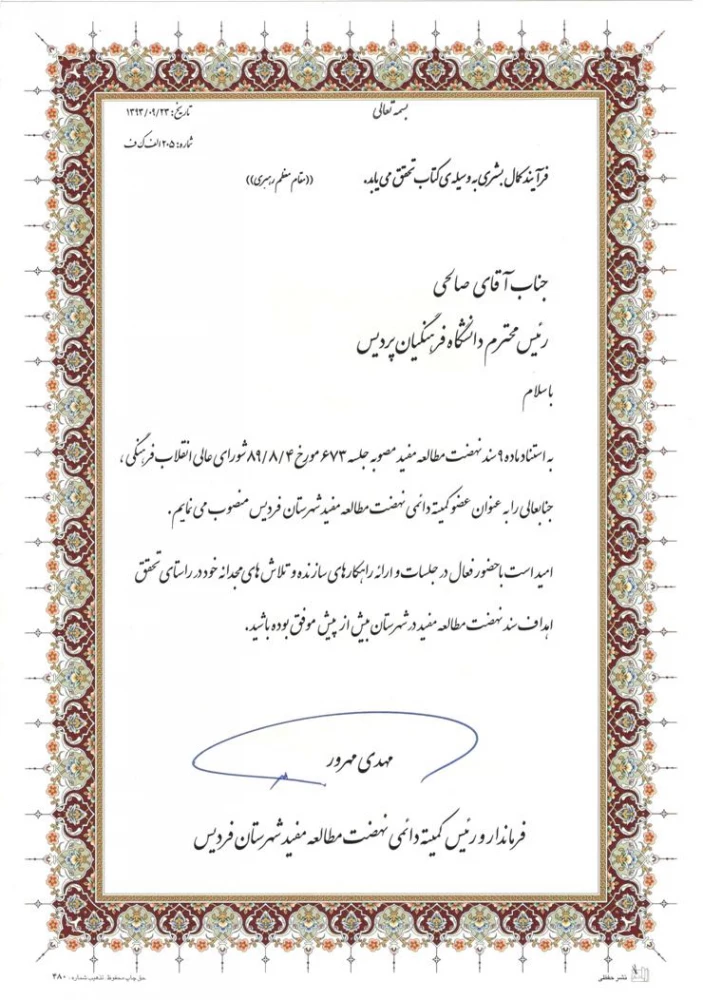 بسمه تعالی
تاریخ: ۱۳۹۳/۰۹/۲۳
شماره: ۲۰۵/الف ک ف
فرآیند کمال بشری به وسیله ی کتاب تحقق می یابد. ((مقام معظم رهبری))
جناب آقای صالحی
رئیس محترم دانشگاه فرهنگیان پردیس
باسلام
به استناد ماده ۹ سند نهضت مطالعه مفید مصوبه جلسه ۶۷۳ مورخ ۸۹/۸/۴ شورای عالی انقلاب فرهنگی ،
جنابعالی را به عنوان عضو کمیته دائمی نهضت مطالعه مفید شهرستان فردیس منصوب می نمایم.
امید است با حضور فعال در جلسات و ارائه راهکارهای سازنده و تلاش های مجدانه خود در راستای تحقق
اهداف سند نهضت مطالعه مفید در شهرستان بیش از پیش موفق بوده باشید.
مهدی مهرور
فرماندار و رئیس کمیته دائمی نهضت مطالعه مفید شهرستان فردیس
نشر حفظی
حق چاپ محفوظ. تذهیب شماره: ۴۸۰